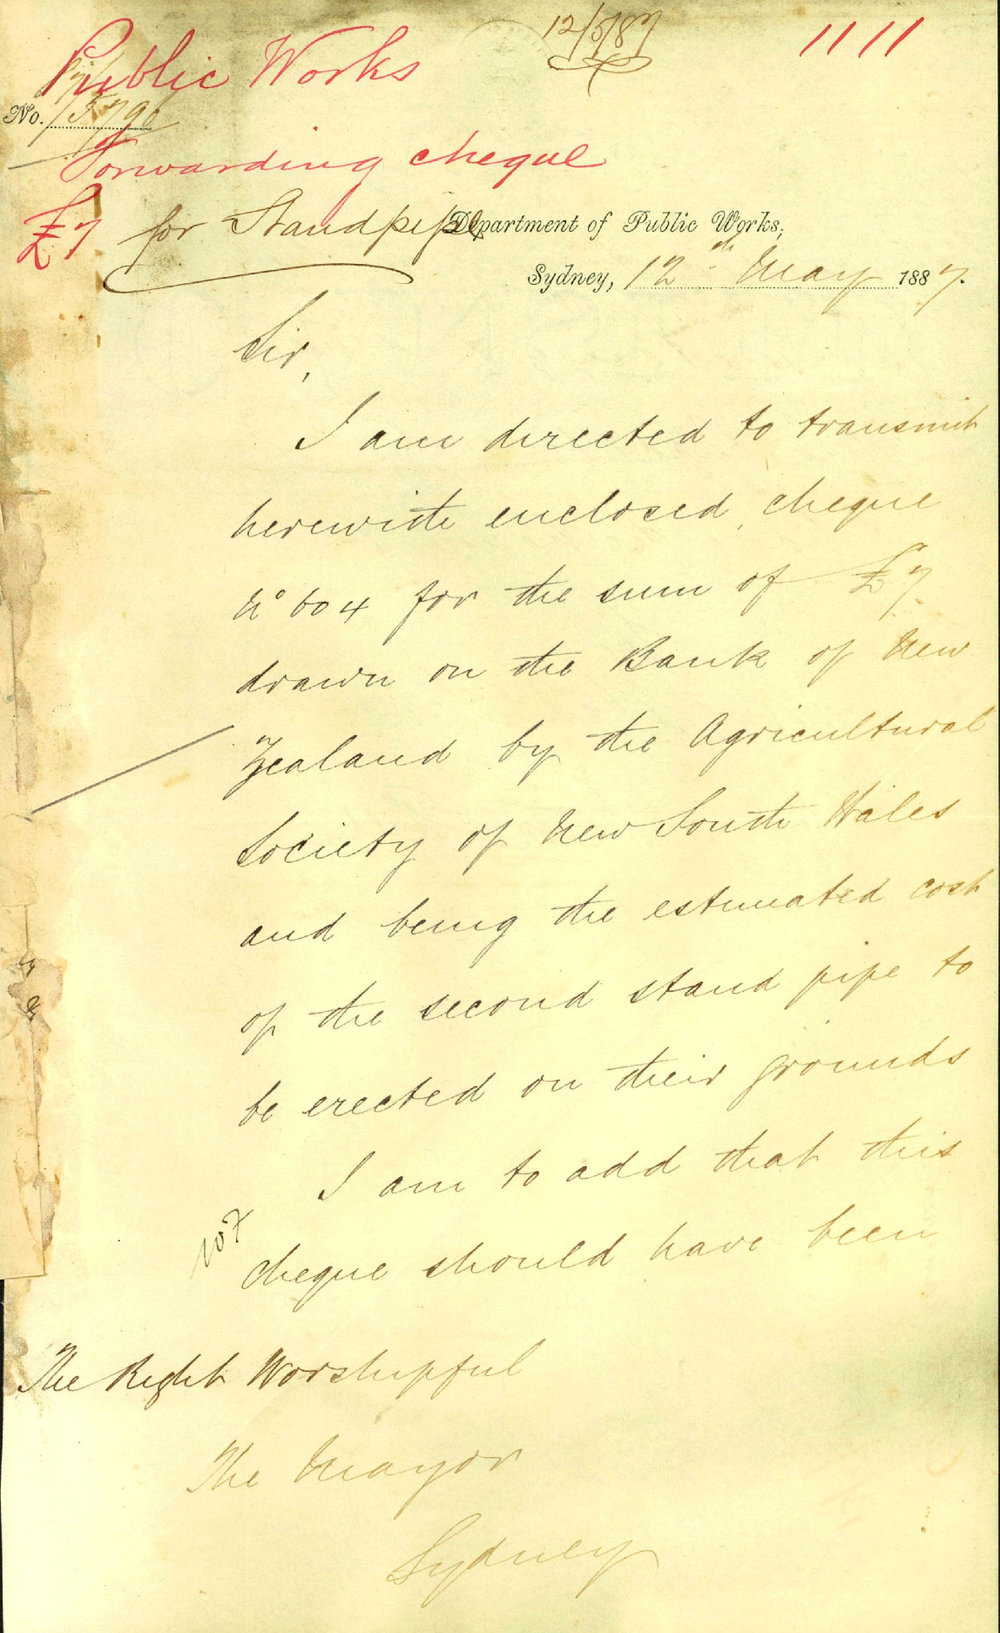 12/5/87
1111
Public Works
No.
Forwarding cheque
£7 for Standpipe
Department of Public Works,
Sydney, 12th May 1887.
Sir,
I am directed to transmit
herewith enclosed cheque
No 604 for the sum of £7
drawn on the Bank of New
Zealand by the Agricultural
Society of New South Wales
and being the estimated cost
of the second stand pipe to
be erected on their grounds
I am to add that this
cheque should have been
The Right Worshipful
The Mayor
Sydney